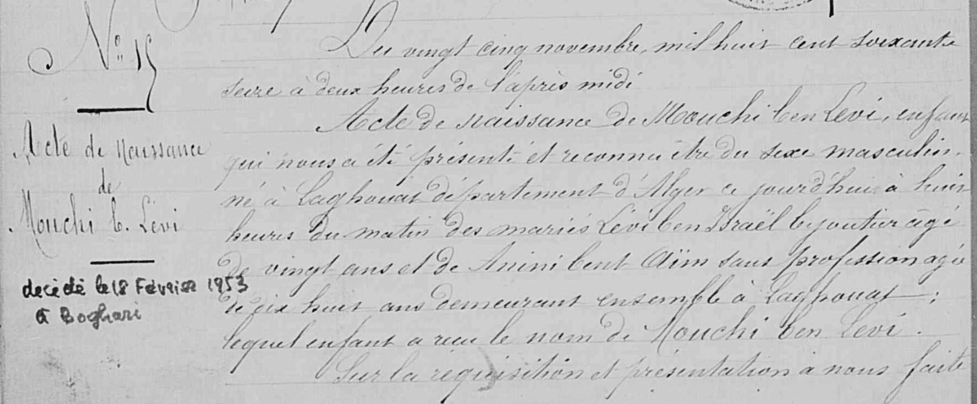 N° 15
Acte de Naissance
de
Mouchi b. Lévi
décédé le 18 Février 1953
à Boghari
Du vingt cinq novembre, mil huit cent soixante
seize à deux heures de l'après midi
Acte de naissance de Mouchi ben Levi, enfant
qui nous a été présenté et reconnu être du sexe masculin,
né à Laghouat département d'Alger ce jourd'hui à huit
heures du matin des mariés Lévi ben Israël bijoutier âgé
de vingt ans et de Anini bent Aïm sans profession agée
de dix huit ans demeurant ensemble à Laghouat ;
lequel enfant a reçu le nom de Mouchi ben Levi.
Sur la requisition et présentation à nous faite